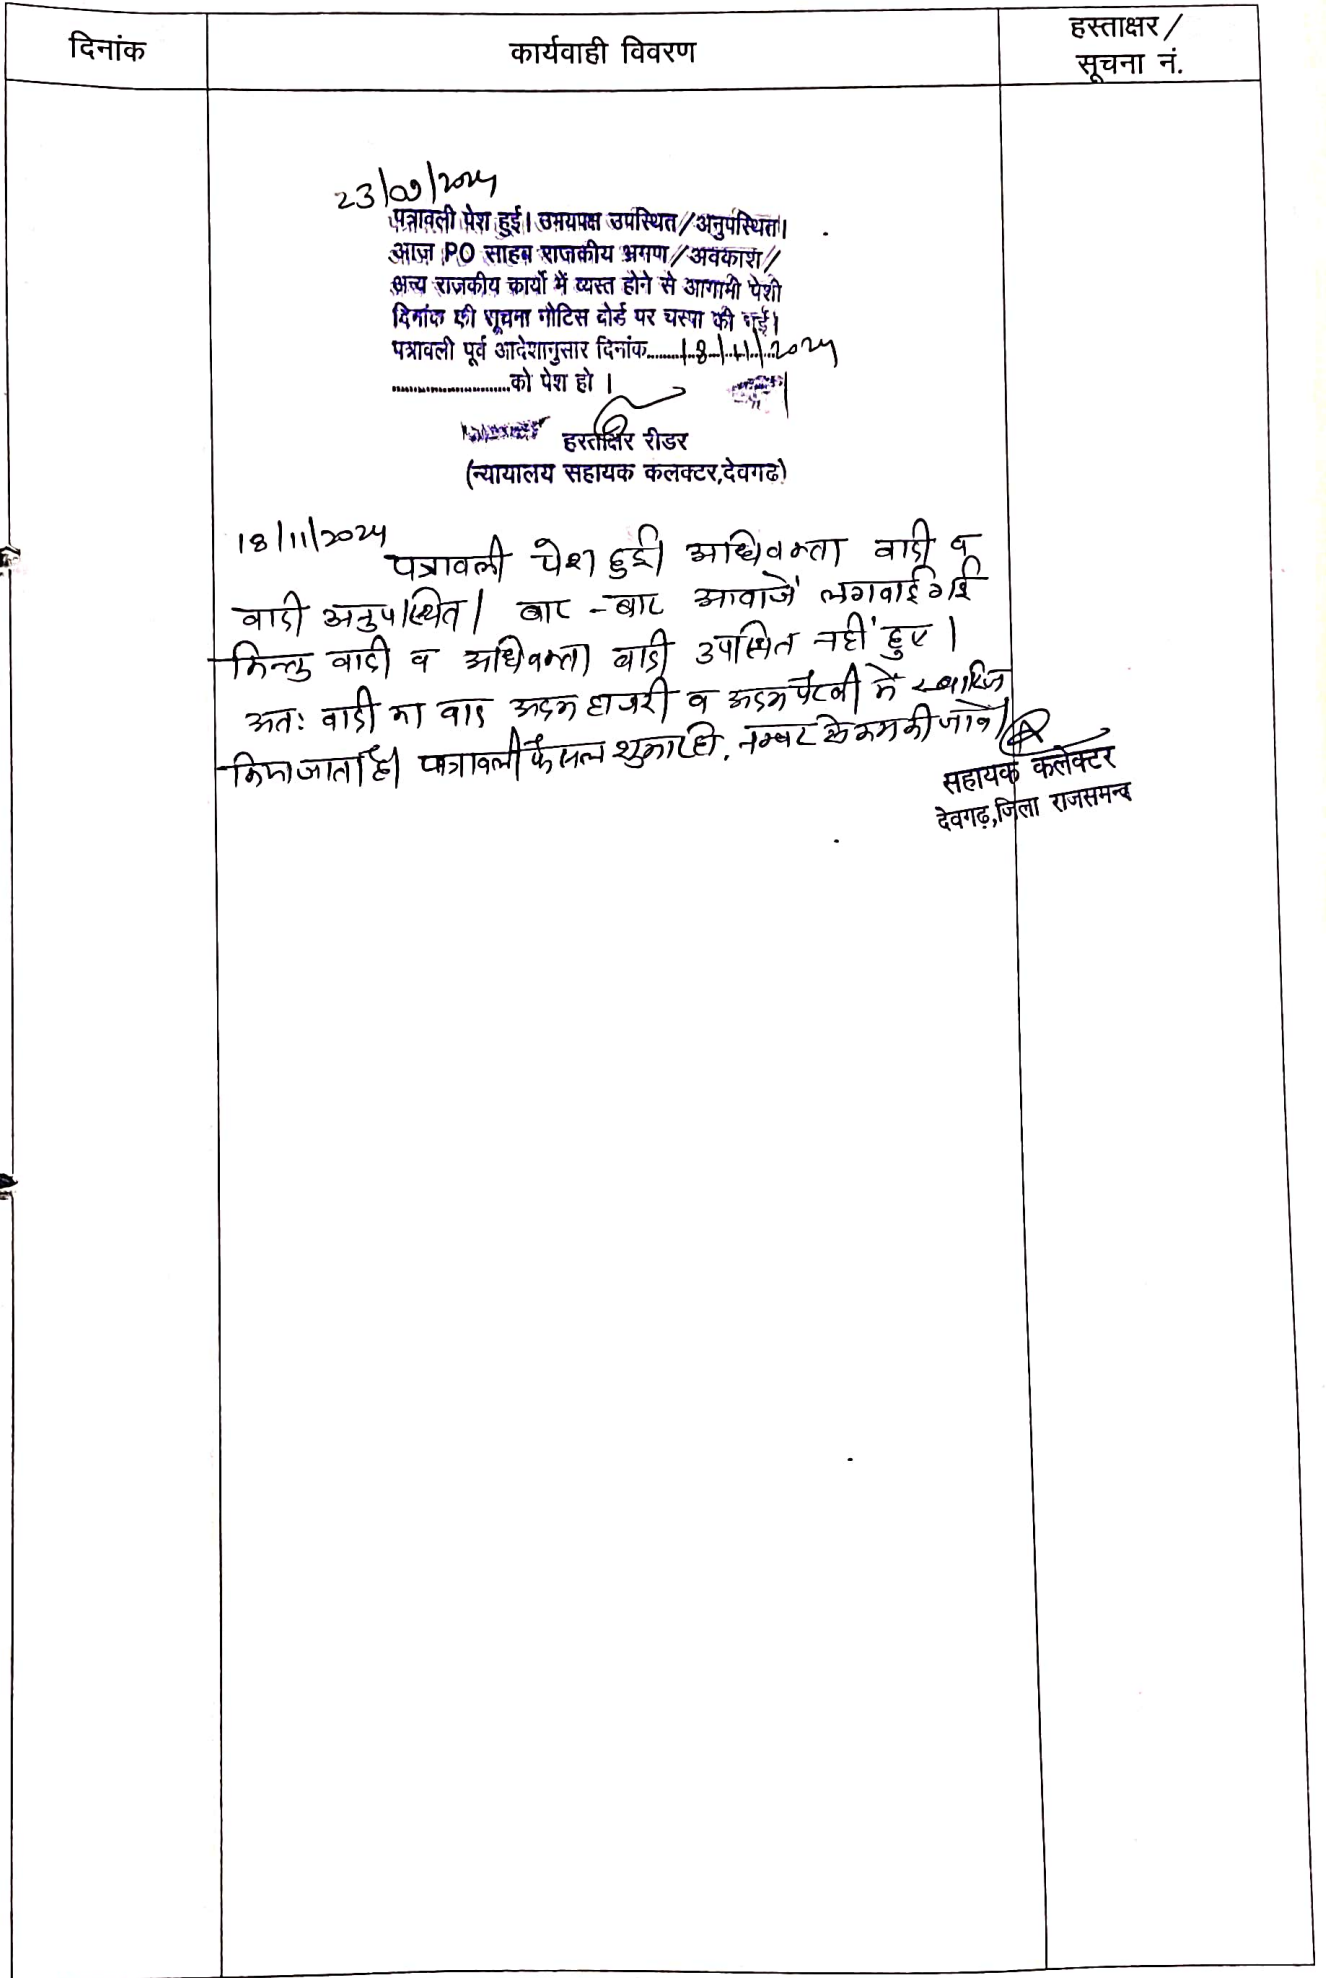 दिनांक
कार्यवाही विवरण
हस्ताक्षर/
सूचना नं.
23/09/2024
पत्रावली पेश हुई। उभयपक्ष उपस्थित//अनुपस्थित।
आज PO साहब राजकीय भ्रमण//अवकाश//
अन्य राजकीय कार्यो में व्यस्त होने से आगामी पेशी
दिनांक की सूचना नोटिस बोर्ड पर चस्पा की गई।
पत्रावली पूर्व आदेशानुसार दिनांक.........18/11/2024
..........................को पेश हो ।
हस्ताक्षर रीडर
(न्यायालय सहायक कलक्टर,देवगढ)
18/11/2024
पत्रावली पेश हुई। अधिवक्ता वादी व
वादी अनुपस्थित। बार -बार आवाजें लगवाई गई
किन्तु वादी व अधिवक्ता वादी उपस्थित नहीं हुए।
अतः वादी का वाद अदम हाजरी व अदम पैरवी में खारिज
किया जाता है। पत्रावली फैसल शुमार हो. नम्बर से कम की जावे।
सहायक कलेक्टर
देवगढ़,जिला राजसमन्द